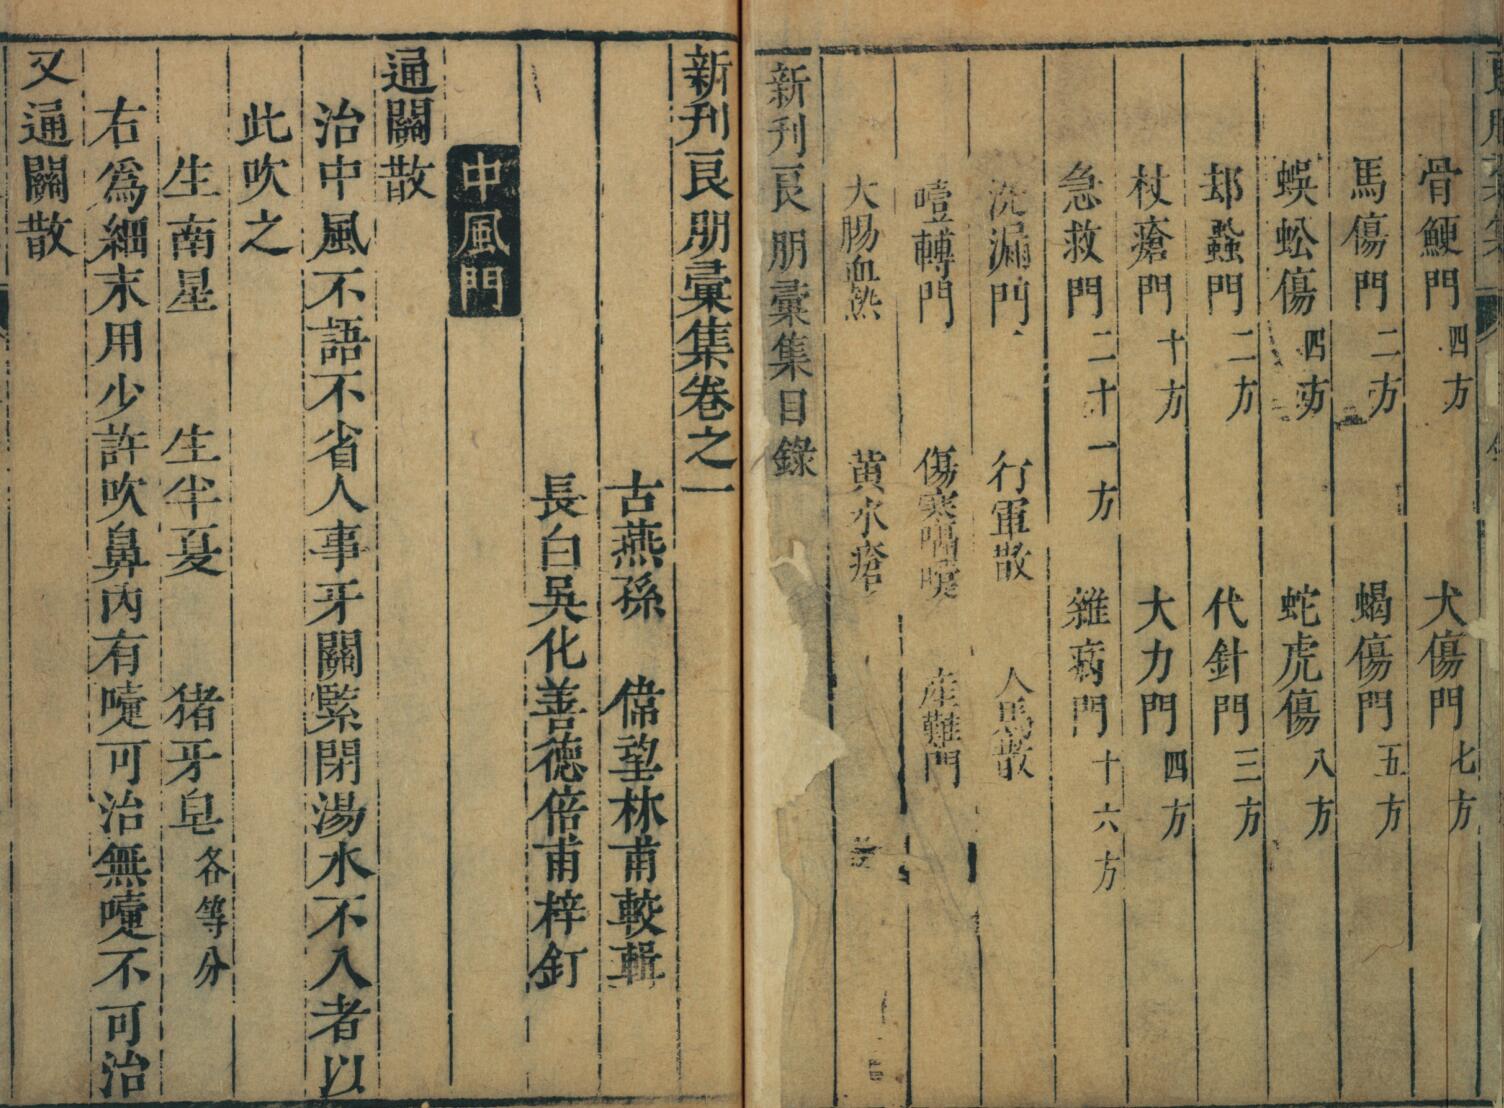 骨鯁門四方 犬傷門七方
馬傷門二方 蝎傷門五方
蜈蚣傷四方 蛇虎傷八方
邺蠚門二方 代針門三方
杖瘡門十方 大力門四方
急救門二十一方 雜病門十六方
洗漏門 行軍散 人馬散
噎轉門 傷寒 産難門
大腸血熱 黄水瘡
新刊良朋彙集目錄
新刊良朋彙集卷之一
古燕孫 偉望林甫較輯
長白吳化善德倍甫梓訂
中風門
通關散
治中風不語不省人事牙關緊閉湯水不入者以
此吹之
生南星 生半夏 猪牙皂各等分
右爲細末用少許吹鼻內有嚏可治無嚏不可治
又通關散